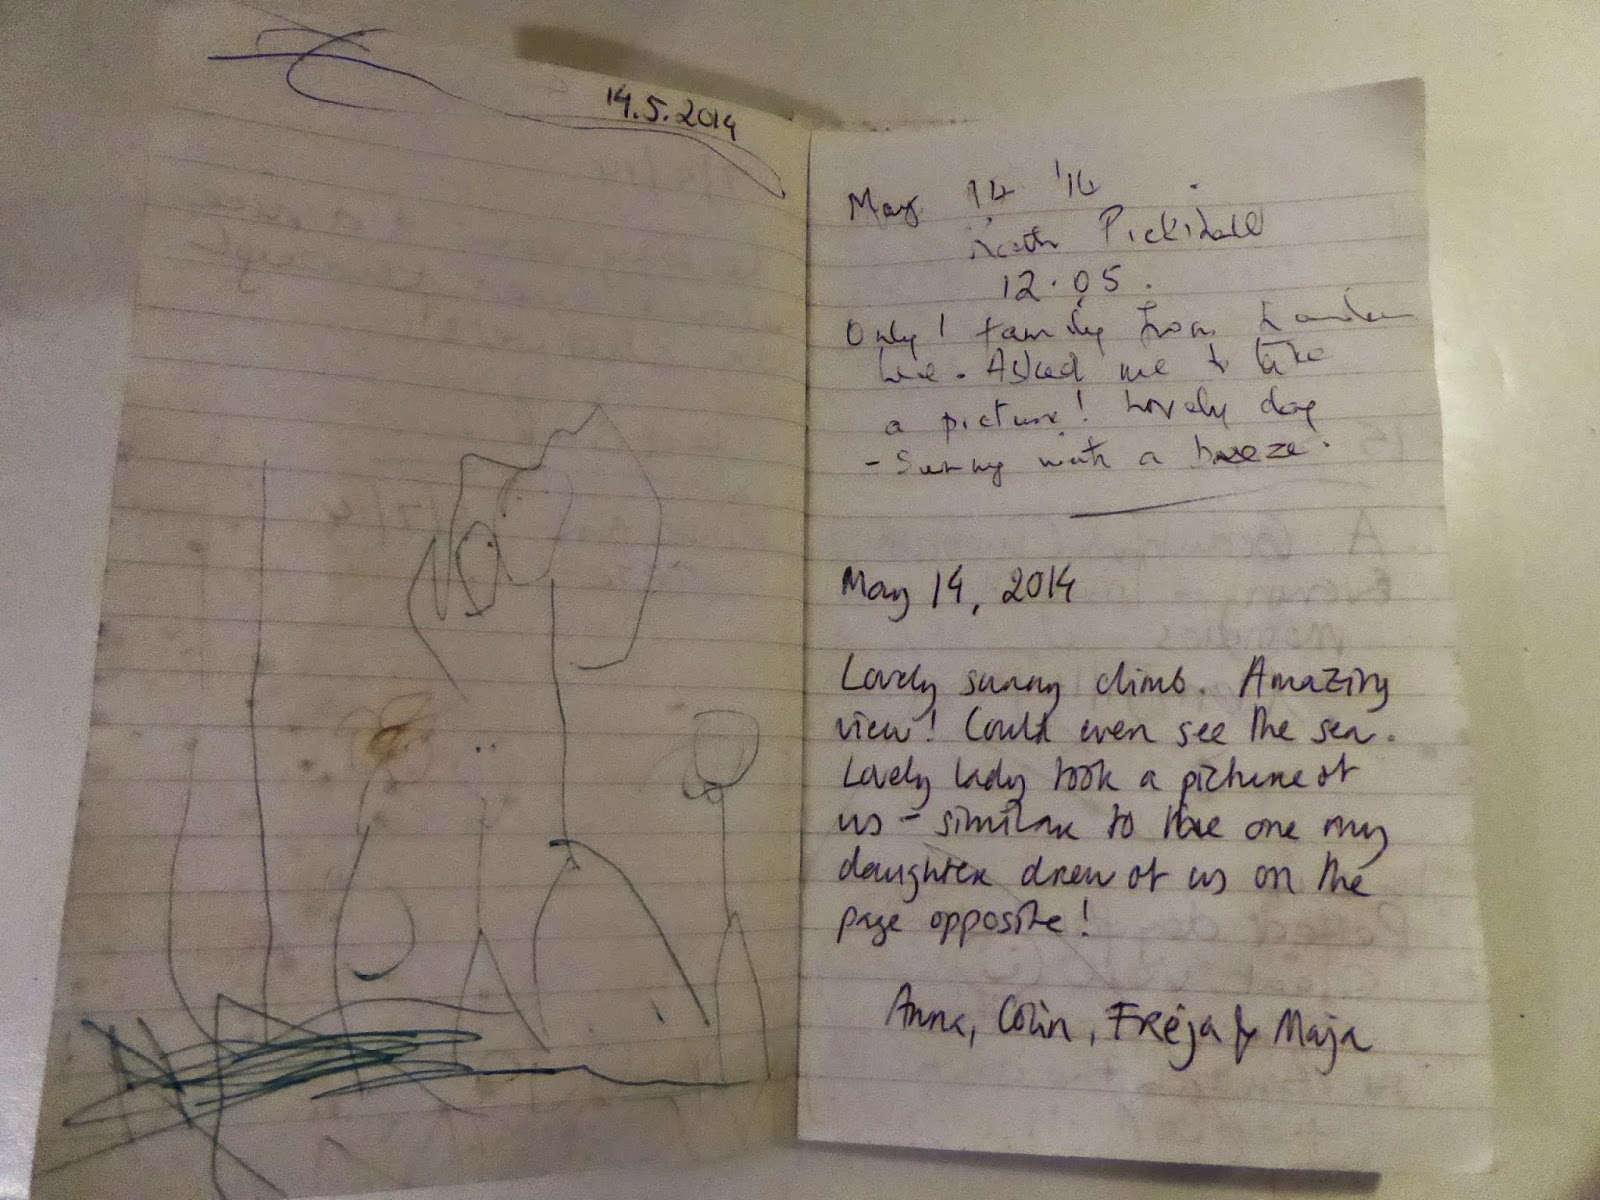 14.5.2014
May 14 '14
Pickthall
12.05.
Only 1 family from London
here. Asked me to take
a picture! Lovely day
- Sunny with a breeze.
May 14, 2014
Lovely sunny climb. Amazing
view! Could even see the sea.
Lovely lady took a picture of
us - similar to the one my
daughter drew of us on the
page opposite!
Anna, Colin, Freja & Maja